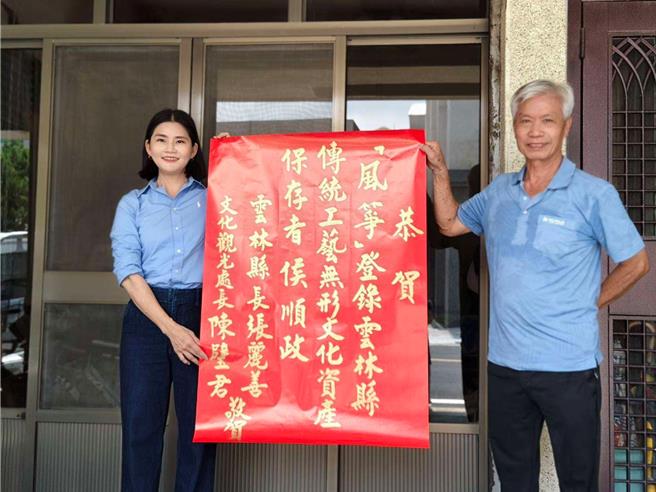 恭賀
「風箏」登錄雲林縣
傳統工藝無形文化資產
保存者 侯順政
雲林縣長張麗善
文化觀光處長陳璧君 敬賀